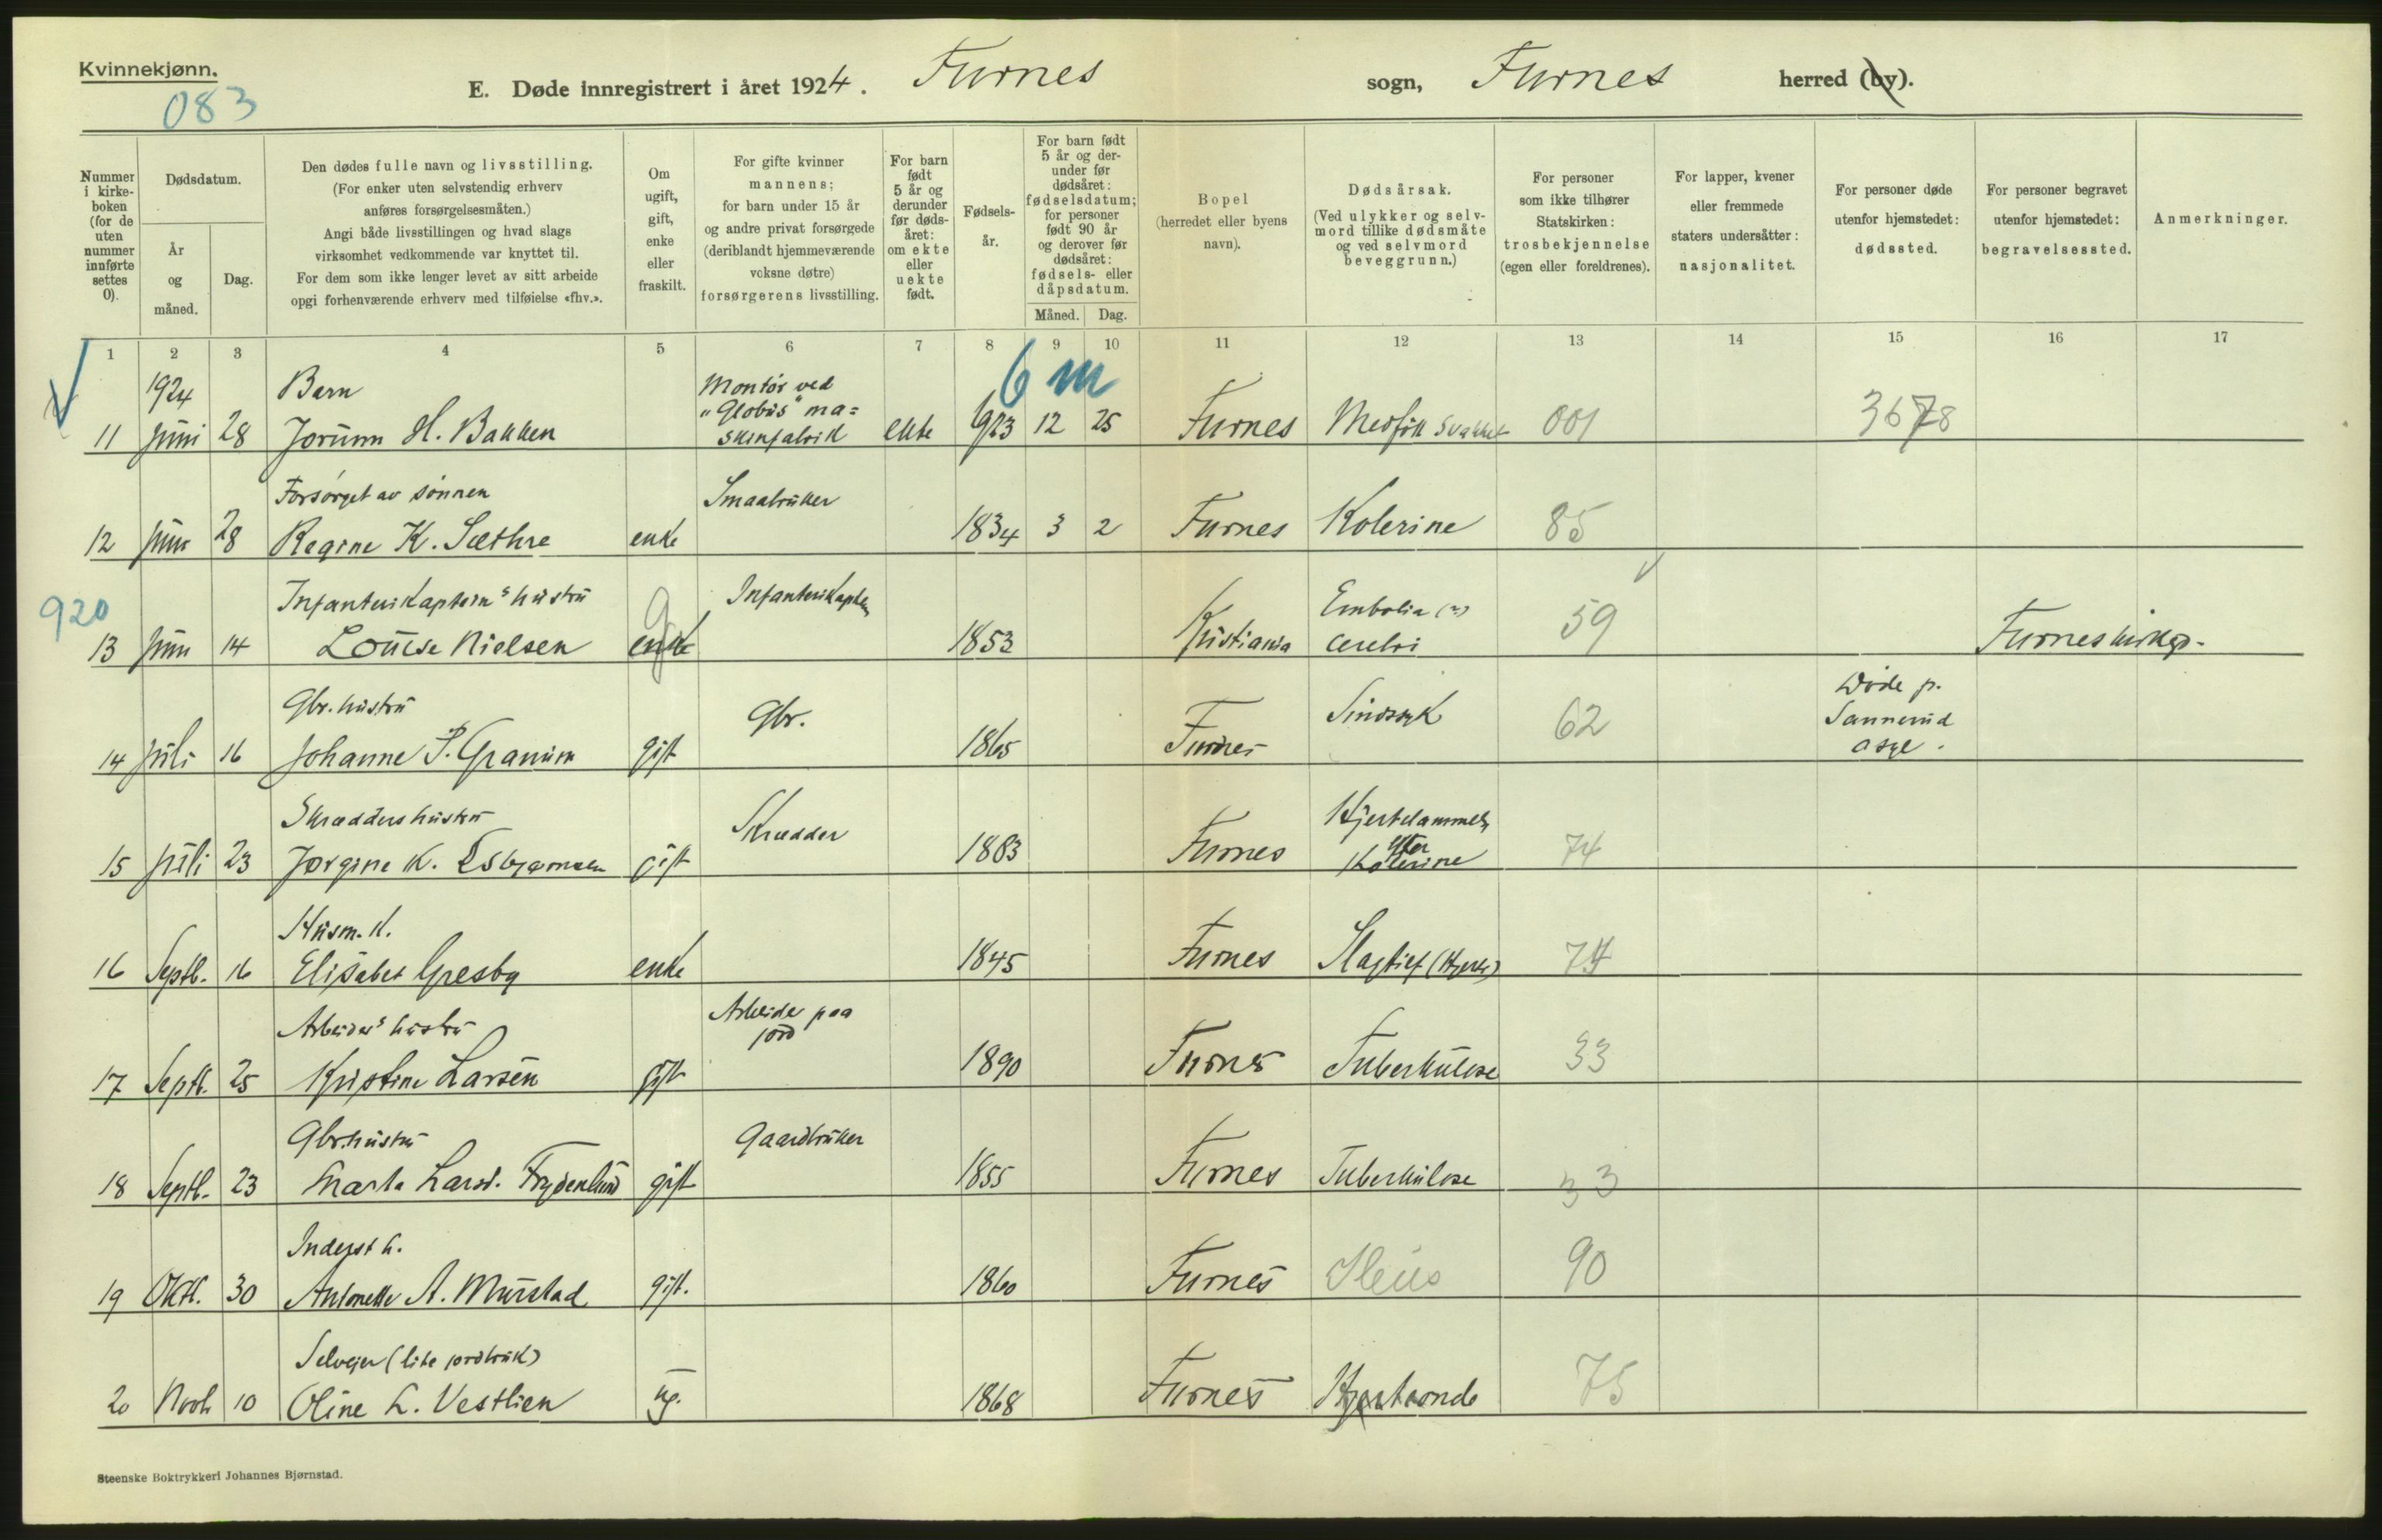 Kvinnekjønn.
083
E. Døde innregistrert i året 1924. Furnes sogn, Furnes herred (by).
Nummer i kirkeboken (for de uten nummer innførte settes 0).
Dødsdatum.
År og måned.
Dag.
Den dødes fulle navn og livsstilling.
(For enker uten selvstendig erhverv
anføres forsørgelsesmåten.)
Angi både livsstillingen og hvad slags
virksomhet vedkommende var knyttet til.
For dem som ikke lenger levet av sitt arbeide
opgi forhenværende erhverv med tilføielse «fhv.».
Om ugift, gift, enke eller fraskilt.
For gifte kvinner
mannens;
for barn under 15 år
og andre privat forsørgede
(deriblandt hjemmeværende
voksne døtre)
forsørgerens livsstilling.
For barn født 5 år og derunder før dødsåret: om ekte eller uekte født.
Fødselsår.
For barn født 5 år og derunder før dødsåret: fødselsdatum; for personer født 90 år og derover før dødsåret: fødsels- eller dåpsdatum.
Måned. Dag.
Bopel
(herredet eller byens
navn).
Dødsårsak.
(Ved ulykker og selvmord tillike dødsmåte og ved selvmord beveggrunn.)
For personer
som ikke tilhører
Statskirken:
trosbekjennelse
(egen eller foreldrenes).
For lapper, kvener
eller fremmede
staters undersåtter:
nasjonalitet.
For personer døde
utenfor hjemstedet:
dødssted.
For personer begravet
utenfor hjemstedet:
begravelsessted.
Anmerkninger.
1 2 3 4 5 6 7 8 9 10 11 12 13 14 15 16 17
6 m
1924 Barn Montør ved
"Globus" ma=
11 Juni 28 Jorunn H. Bakken skinfabrik ekte 1923 12 25 Furnes Medfødt Svakhet 001 3678
Forsørget av sønnen Smaabruker
12 Juni 28 Regine K. Sæthre enke 1834 3 2 Furnes Kolerine 85
920
Infanterikaptein's hustru g Infanterikaptein Embolia
13 Juni 14 Louise Nielsen enke 1853 Kristiania cerebri 59 Furnes kirkegd.
Gbr. hustru Gbr. Sindssyk Døde p.
Sannerud
14 Juli 16 Johanne P. Granum gift 1865 Furnes 62 asyl.
Skrædders hustru Skrædder Hjertelammelse
efter
15 Juli 23 Jørgine K. Esbjørnsen gift 1883 Furnes Kolerine 74
Husm. K.
16 Septb. 16 Elisabet Gresby enke 1845 Furnes Slagtilf (Hjerte) 74
Arbeider's hustru Arbeider paa
jord
17 Septb. 25 Kristine Larsen gift 1890 Furnes Tuberkulose 33
Gbr. hustru Gaardbruker
18 Septb. 23 Marta Larsd. Frydenlund gift 1855 Furnes Tuberkulose 33
Inderst h.
19 Oktb. 30 Antonette A. Murstad gift. 1860 Furnes Ileus 90
Selvejer (lite jordbruk)
20 Novb 10 Oline L. Vestlien ug. 1868 Furnes Hjerteonde 75
Steenske Boktrykkeri Johannes Bjørnstad.